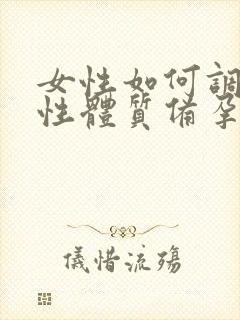 女性如何調
性體質備孕
儀惜流殤